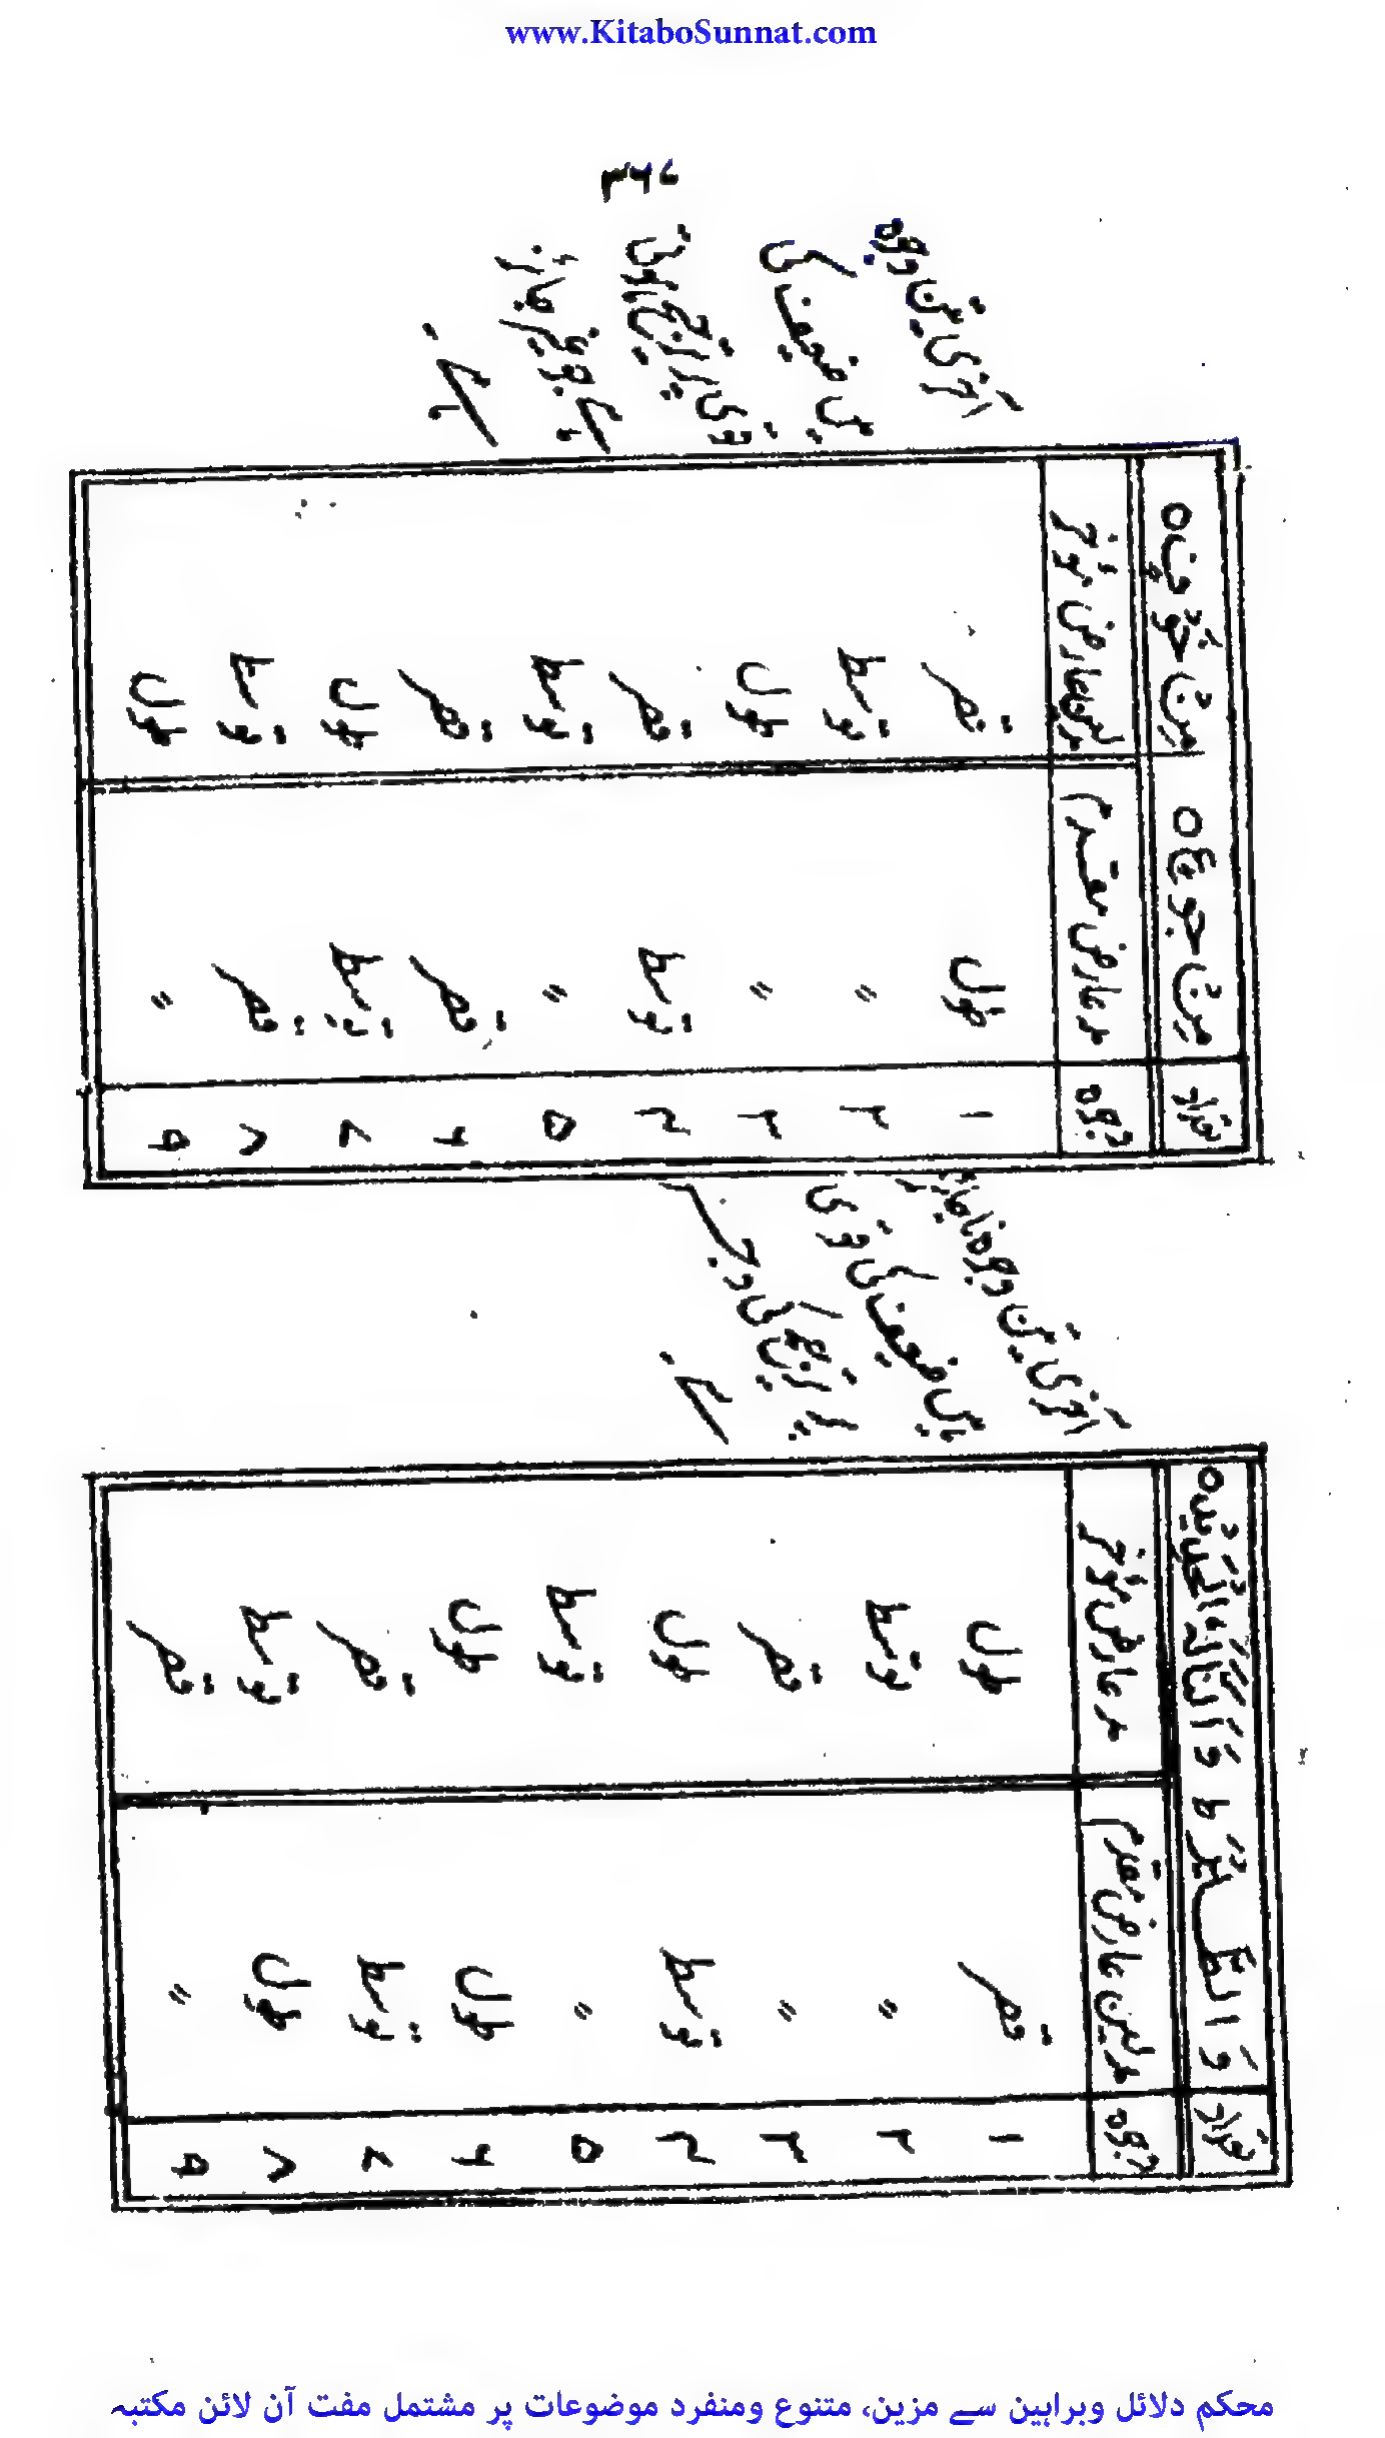 www.KitaboSunnat.com
تعداد وَالطَّيْرَ ط وَاَلَنَّا لَهُ الْحَدِيْدَ ه
وجوہ مدلین عارض مقدم مد عارض مؤخر
۱ قصر طول
۲ " توسط
۳ " قصر
۴ توسط طول
۵ " توسط
۶ طول طول
۷ توسط قصر
۸ طول توسط
۹ " قصر
آخری تین وجوہ ناجائز
ہیں ضعیف کی قوی
پر ترجیح کی وجہ
سے۔
تعداد مِنْ جُوْعٍ ه مِنْ خَوْفٍ ه
وجوہ مد عارض مقدم مدلین عارض مؤخر
۱ طول قصر
۲ " توسط
۳ " طول
۴ توسط قصر
۵ " توسط
۶ قصر قصر
۷ توسط طول
۸ قصر توسط
۹ " طول
آخری تین وجوہ
میں ضعیف کی
قوی پر ترجیح ہوتی
ہے جو غیر جائز
ہے۔
محکم دلائل وبراہین سے مزین، متنوع ومنفرد موضوعات پر مشتمل مفت آن لائن مکتبہ